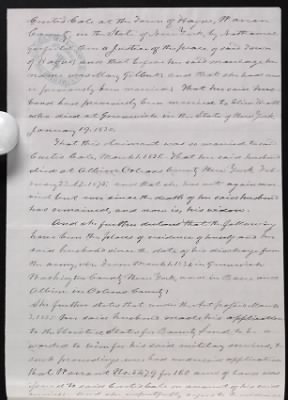 Curtis Cole at the Town of Wayne, Warren
County, in the State of New York, by Nathaniel
a Justice of the peace of said Town
of and that before her said marriage her
name was Mary Gilbert and that she had nev
er previously been married. That her said hus
band had previously been married to
who died at Greenwich in the State of New York
January 19, 1830.
That this claimant was so married to said
Curtis Cole, March 1, 1838. That her said husband
died at Albion, Orleans County New York Feb
ruary 1875; and that she has not again mar
ried but ever since the death of her said husband
has remained, and now is, his widow.
And she further declares that the following
have been the places of residence of herself and her
said husband since the date of his discharge from
the army, viz: From March 1, in Greenwich
Washington County New York, and in Barre and
Albion in Orleans County:
She further states that under the Act passed March
3, 1855 her said husband made his application
to the United States for Bounty Land, to be a
warded to him for his said military services, &
such proceedings were had under said application
that Warrant No. for 160 acres of land was
issued to said Curtis Cole on account of his said